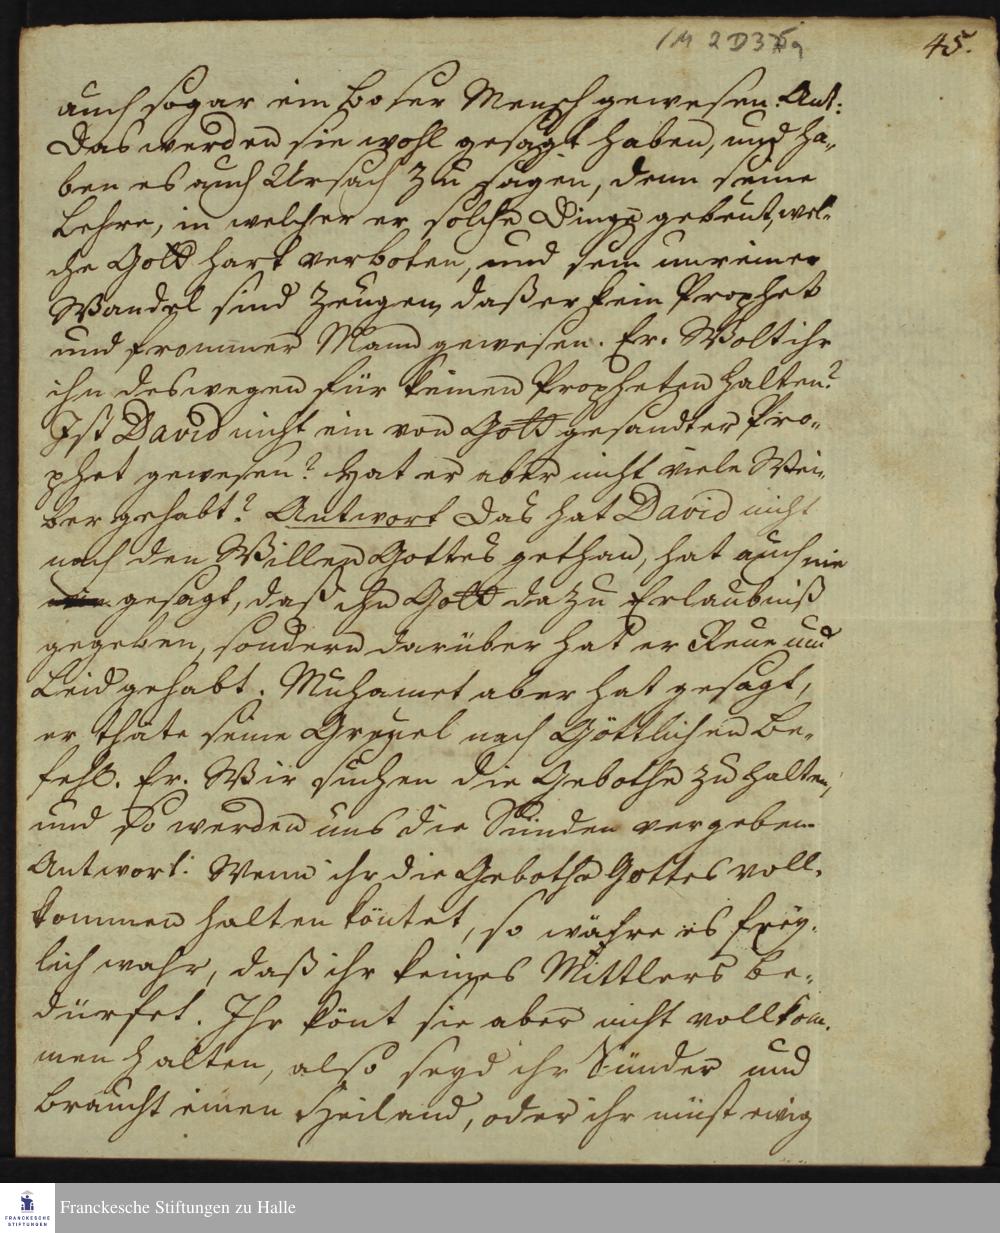 1M 2D 37a
45.
auch sogar ein böser Mensch gewesen. Ant:
Das werden sie wohl gesagt haben, und ha„
ben es auch Ursach zu sagen, denn seine
Lehre, in welcher er solche Dinge gebeut, wel„
che Gott hart verboten, und sein unreiner
Wandel sind Zeugen, daß er kein Prophet
und frommer Mann gewesen. Er. Wolt ihr
ihn deswegen für keinen Propheten halten?
Ist David nicht ein von Gott gesandter Pro„
phet gewesen? Hat er aber nicht viele Wei„
ber gehabt? Antwort Das hat David nicht
nach den Willen Gottes gethan, hat auch nie
gesagt, daß ihn Gott dazu Erlaubniß
gegeben, sondern darüber hat er Reue und
Leid gehabt. Muhamet aber hat gesagt,
er thäte seine Greuel nach Göttlichen Be„
fehl. Er. Wir suchen die Gebothe zu halten,
und so werden uns die Sünden vergeben
Antwort: Wenn ihr die Gebothe Gottes voll„
kommen halten köntet, so währe es frey„
lich wahr, daß ihr keines Mittlers be„
dürfet. Ihr könt sie aber nicht vollkom„
men halten, also seyd ihr Sünder und
braucht einen Heiland, oder ihr müst ewig
Franckesche Stiftungen zu Halle
FRANCKESCHE
STIFTUNGEN